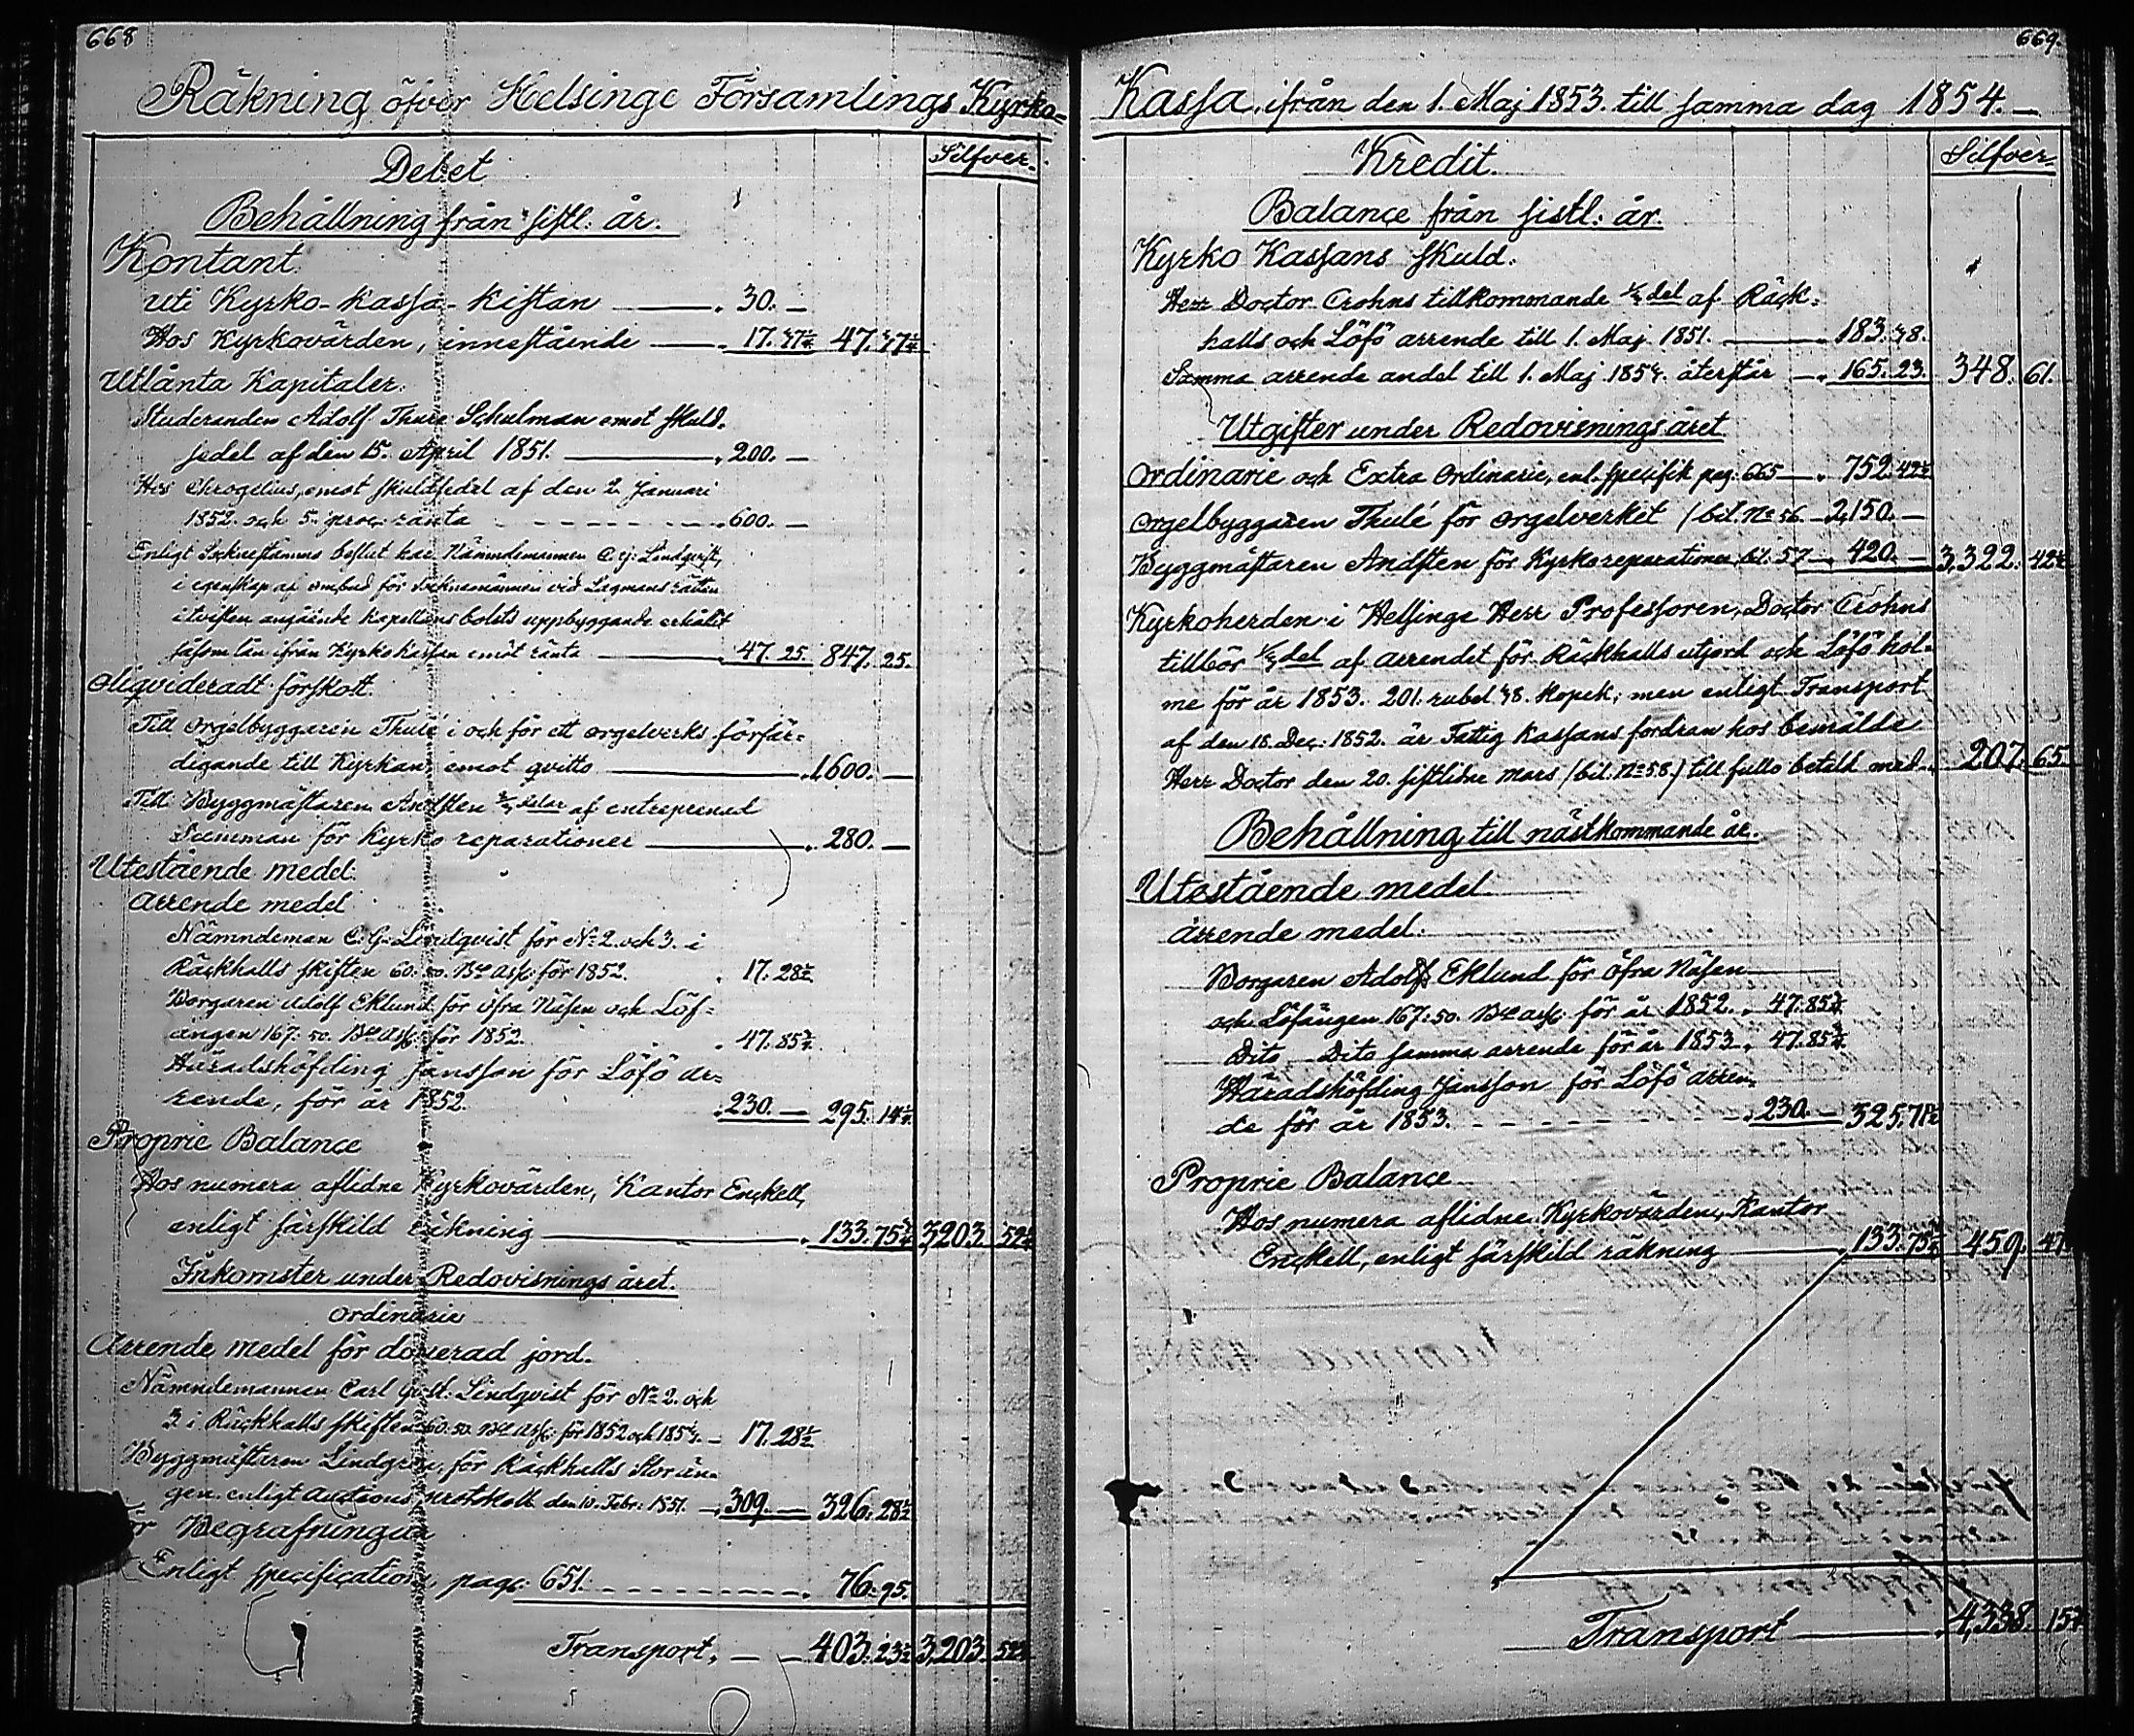 668
Räkning öfver Helsinge Församlings Kyrko-
Debet
Silfver.
Behållning från sistl: år.
Kontant.
uti Kyrko-kassa-kistan — . 30. —
Hos Kyrkovärden, innestående — . 17.47¼ 47.47¼
Utlånta Kapitaler:
Studeranden Adolf Thure Schulman emot skuld-
sedel af den 15. April 1851. — . 200. —
Hos Chrogelius, emot skuldsedel af den 2. Januari
1852. och 5. proc: ränta - - - - . 600. —
Enligt Sockenstämmo beslut har Nämndemannen C. G: Lindqvist,
i egenskap af ombud för Socknemännen vid Lagmans rätten
i tvisten angående Kapellans bolets uppbyggande erhållit
såsom lån ifrån Kyrko kassan emot ränta — . 47. 25. 847. 25.
Oliqvideradt förskott.
Till orgelbyggaren Thulé i och för ett orgelverks förfär-
digande till Kyrkan emot qvitto — . 1,600. —
Till Byggmästaren Andsten ⅔ delar af entreprenad
Summan för Kyrko reparationer — . 280. —
Utestående medel:
Arrende medel
Nämndeman C. G. Lindqvist för No 2. och 3. i
Räckhalls skiften 60. 50. Bco Ass: för 1852. . 17. 28½
Borgaren Adolf Eklund för Öfra Näsen och Löf-
ängen 167: 50. Bco Ass: för 1852. . 47. 85¾.
Häradshöfding Jansson för Löfö ar-
rende, för år 1852. . 230. — 295. 14¼.
Proprie Balance
Hos numera aflidne Kyrkovärden, Kantor Enckell,
enligt särskild räkning — . 133. 75¾ 3,203. 52¼
Inkomster under Redovisnings året.
Ordinarie
Arrende medel för donerad jord.
Nämndemannen Carl Gust: Lindqvist för No 2. och
3 i Räckhalls skiften 60. 50. Bco Ass: för 1852 och 1854. — 17. 28½
Byggmästaren Lindgren, för Räckhalls Storän-
gen enligt auctions protokoll den 10. Febr: 1851. — . 309. — 326. 28½
För Begrafningar
Enligt specification, pag: 651. - - - - . 76. 95.
Transport, — — 403. 23½ 3,203. 52¼
669.
Kassa, ifrån den 1. Maj 1853. till samma dag 1854. —
Kredit.
Silfver.
Balance från sistl: år.
Kyrko Kassans skuld:
Herr Doctor Crohns tillkommande ⅓ del af Räck-
halls och Löfö arrende till 1. Maj 1851. — . 183. 48.
Samma arrende andel till 1. Maj 1854. återstår — . 165. 23. 348. 61.
Utgifter under Redovisnings året
Ordinarie och Extra Ordinarie, enl. specifik pag: 665 — . 752. 42½
Orgelbyggaren Thulé för orgelverket (bil. No 56. — 2,150. —
Byggmästaren Andsten för Kyrkoreparationer, bil: 57 — . 420. — 3,322. 42½
Kyrkoherden i Helsinge Herr Professoren, Doctor Crohns
tillkom ⅓ del af arrendet för Räckhalls utjord och Löfö hol-
me för år 1853. 201. rubel 48. kopek; men enligt Transport
af den 18. Dec: 1852. är Fattig kassans fordran hos bemälde
Herr Doctor den 20. sistlidne Mars (bil: No 58.) till fullo betald med . 207. 65.
Behållning till nästkommande år.
Utestående medel
Arrende medel:
Borgaren Adolf Eklund för Öfra Näsen
och Löfängen 167: 50. Bco ass: för år 1852. . 47. 85¾
Dito Dito samma arrende för år 1853. . 47. 85¾
Häradshöfding Jansson för Löfö arren-
de för år 1853. - - - - . 230. — 325. 71½
Proprie Balance
Hos numera aflidne Kyrkovärden, Kantor
Enckell, enligt särskild räkning — . 133. 75¾ 459. 47
Transport — . 4,338. 15¾